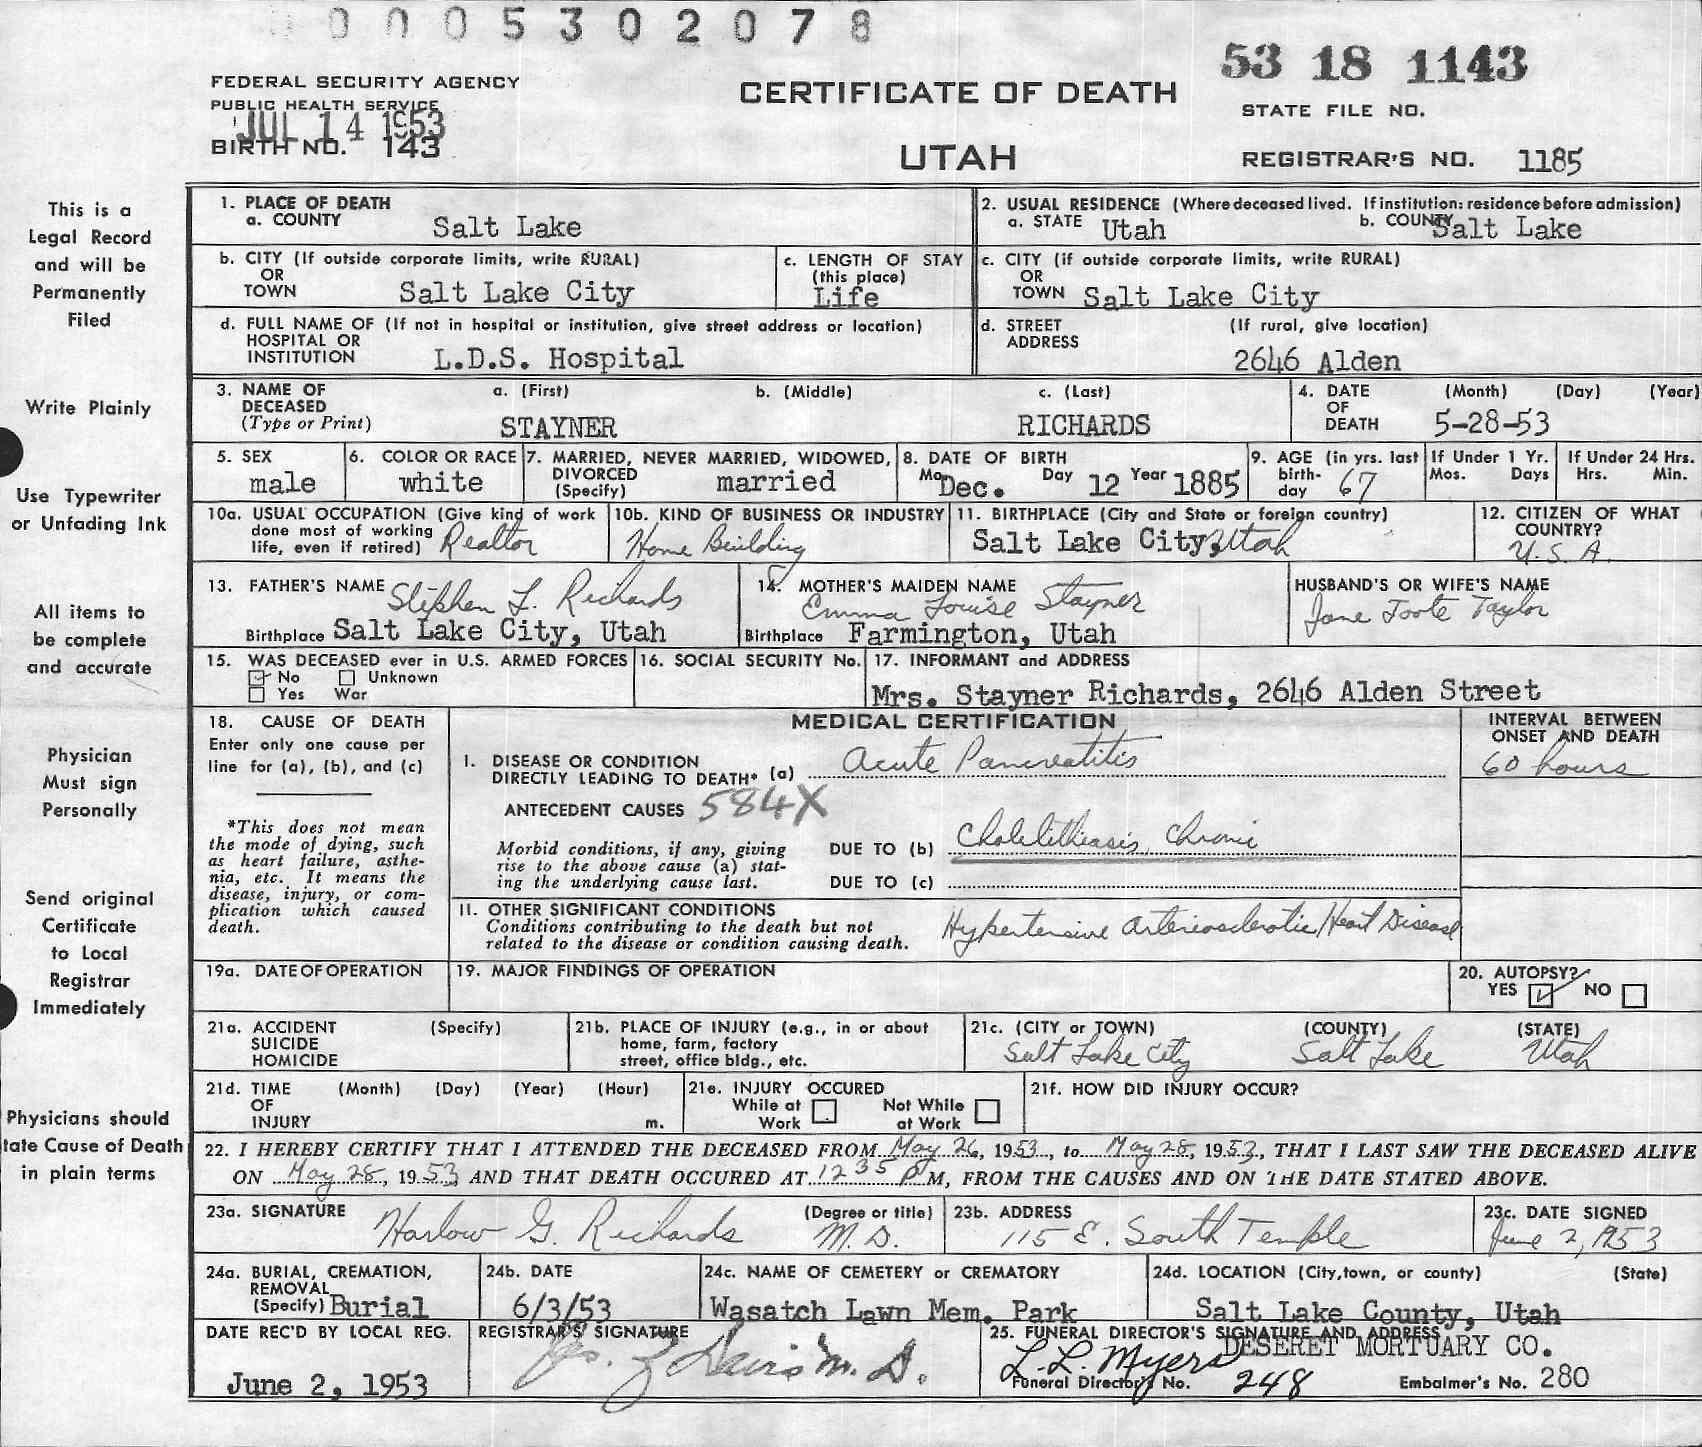 0 0 0 5 3 0 2 0 7 8
53 18 1143
FEDERAL SECURITY AGENCY
CERTIFICATE OF DEATH
STATE FILE NO.
PUBLIC HEALTH SERVICE
JUL 14 1953
BIRTH NO. 143
UTAH
REGISTRAR'S NO. 1185
This is a
Legal Record
and will be
Permanently
Filed
Write Plainly
Use Typewriter
or Unfading Ink
All items to
be complete
and accurate
Physician
Must sign
Personally
Send original
Certificate
to Local
Registrar
Immediately
Physicians should
tate Cause of Death
in plain terms
1. PLACE OF DEATH
a. COUNTY Salt Lake
2. USUAL RESIDENCE (Where deceased lived. If institution: residence before admission)
a. STATE Utah b. COUNTY Salt Lake
b. CITY (If outside corporate limits, write RURAL)
OR
TOWN Salt Lake City
c. LENGTH OF STAY
(this place)
Life
c. CITY (if outside corporate limits, write RURAL)
OR
TOWN Salt Lake City
d. FULL NAME OF (If not in hospital or institution, give street address or location)
HOSPITAL OR
INSTITUTION L.D.S. Hospital
d. STREET (If rural, give location)
ADDRESS
2646 Alden
3. NAME OF a. (First) b. (Middle) c. (Last)
DECEASED
(Type or Print) STAYNER RICHARDS
4. DATE (Month) (Day) (Year)
OF
DEATH 5-28-53
5. SEX
male
6. COLOR OR RACE
white
7. MARRIED, NEVER MARRIED, WIDOWED,
DIVORCED
(Specify) married
8. DATE OF BIRTH
Mo Dec. Day 12 Year 1885
9. AGE (in yrs. last
birth-
day 67
If Under 1 Yr.
Mos. Days
If Under 24 Hrs.
Hrs. Min.
10a. USUAL OCCUPATION (Give kind of work
done most of working
life, even if retired) Realtor
10b. KIND OF BUSINESS OR INDUSTRY
Home Building
11. BIRTHPLACE (City and State or foreign country)
Salt Lake City, Utah
12. CITIZEN OF WHAT
COUNTRY?
U.S.A.
13. FATHER'S NAME Stephen L. Richards
Birthplace Salt Lake City, Utah
14. MOTHER'S MAIDEN NAME
Emma Louise Stayner
Birthplace Farmington, Utah
HUSBAND'S OR WIFE'S NAME
Jane Foote Taylor
15. WAS DECEASED ever in U.S. ARMED FORCES
No Unknown
Yes War
16. SOCIAL SECURITY No.
17. INFORMANT and ADDRESS
Mrs. Stayner Richards, 2646 Alden Street
18. CAUSE OF DEATH
Enter only one cause per
line for (a), (b), and (c)
*This does not mean
the mode of dying, such
as heart failure, asthe-
nia, etc. It means the
disease, injury, or com-
plication which caused
death.
MEDICAL CERTIFICATION
INTERVAL BETWEEN
ONSET AND DEATH
I. DISEASE OR CONDITION
DIRECTLY LEADING TO DEATH* (a) Acute Pancreatitis
60 hours
ANTECEDENT CAUSES 584X
Morbid conditions, if any, giving
rise to the above cause (a) stat-
ing the underlying cause last.
DUE TO (b) Cholelithiasis, Chronic
DUE TO (c)
II. OTHER SIGNIFICANT CONDITIONS
Conditions contributing to the death but not
related to the disease or condition causing death.
Hypertensive Arteriosclerotic Heart Disease
19a. DATE OF OPERATION
19. MAJOR FINDINGS OF OPERATION
20. AUTOPSY?
YES NO
21a. ACCIDENT (Specify)
SUICIDE
HOMICIDE
21b. PLACE OF INJURY (e.g., in or about
home, farm, factory
street, office bldg., etc.
21c. (CITY or TOWN) (COUNTY) (STATE)
Salt Lake City Salt Lake Utah
21d. TIME (Month) (Day) (Year) (Hour)
OF
INJURY m.
21e. INJURY OCCURED
While at Not While
Work at Work
21f. HOW DID INJURY OCCUR?
22. I HEREBY CERTIFY THAT I ATTENDED THE DECEASED FROM May 26, 1953, to May 28, 1953, THAT I LAST SAW THE DECEASED ALIVE
ON May 28, 1953 AND THAT DEATH OCCURED AT 12 35 P M, FROM THE CAUSES AND ON THE DATE STATED ABOVE.
23a. SIGNATURE (Degree or title)
Harlow G. Richards M.D.
23b. ADDRESS
115 E. South Temple
23c. DATE SIGNED
June 2, 1953
24a. BURIAL, CREMATION,
REMOVAL
(Specify) Burial
24b. DATE
6/3/53
24c. NAME OF CEMETERY or CREMATORY
Wasatch Lawn Mem. Park
24d. LOCATION (City, town, or county) (State)
Salt Lake County, Utah
DATE REC'D BY LOCAL REG.
June 2, 1953
REGISTRAR'S SIGNATURE
Davis M.D.
25. FUNERAL DIRECTOR'S SIGNATURE AND ADDRESS
DESERET MORTUARY CO.
L.L. Myers
Funeral Director's No. 248 Embalmer's No. 280